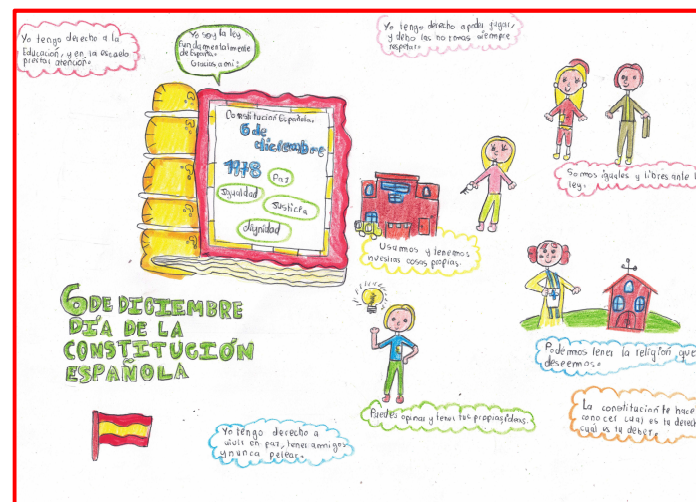 Yo tengo derecho a la
Educación, y en la escuela
prestar atención.
Yo soy la ley
Fundamentalmente
de España.
Gracias a mi:
Yo tengo derecho a poder jugar,
y debo las normas siempre
respetar.
Constitución Española.
6 de
diciembre
1978
Paz
Igualdad
Justicia
dignidad
Somos iguales y libres ante l
ley.
Usamos y tenemos
nuestras cosas propias.
6 DE DICIEMBRE
DÍA DE LA
CONSTITUCIÓN
ESPAÑOLA
Podemos tener la religión que
deseemos.
Puedes opinar y tener tus propias ideas.
La constitución te hace
conocer cuál es tu derech
cuál es tu deber.
Yo tengo derecho a
vivir en paz, tener amigos
y nunca pelear.